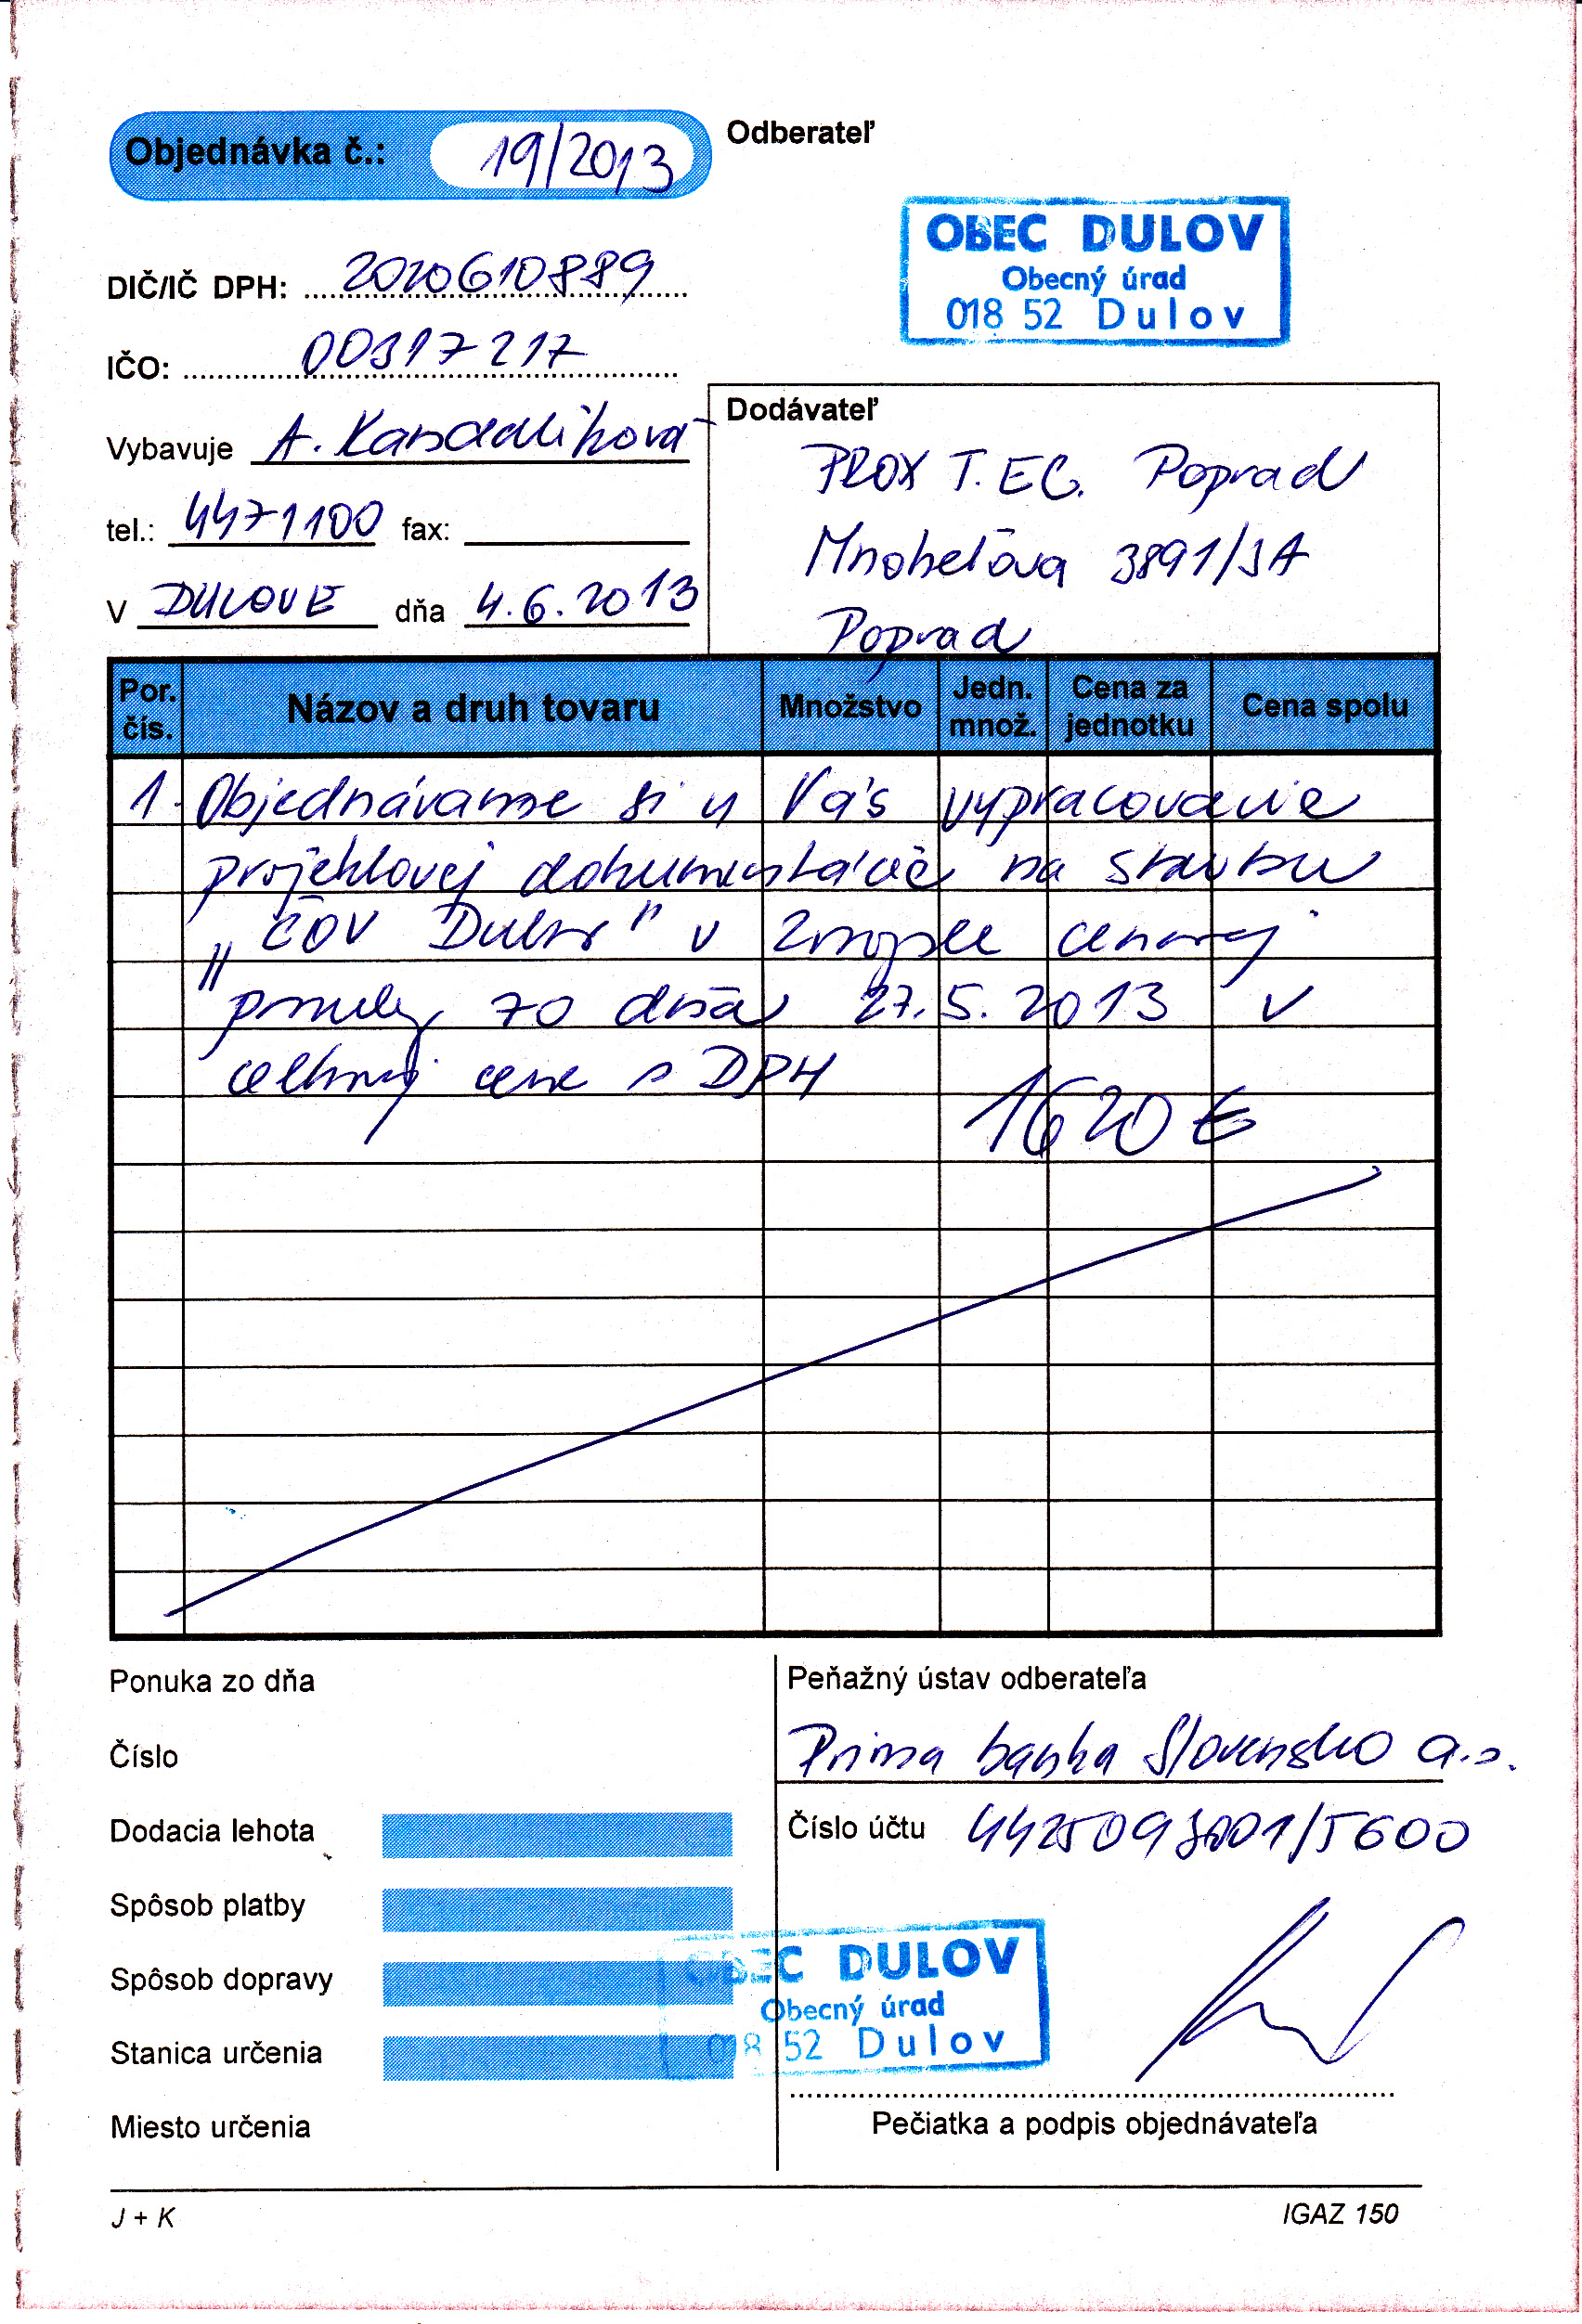 Objednávka č.: 19/2013
Odberateľ
OBEC DULOV
Obecný úrad
018 52 Dulov
DIČ/IČ DPH: 2020610889
IČO: 00317217
Vybavuje A. Kandalíková
tel.: 4471100 fax:
V DULOVE dňa 4.6.2013
Dodávateľ
PROX T.EC. Poprad
Mnoheľova 3891/3A
Poprad
Por. čís. Názov a druh tovaru Množstvo Jedn. množ. Cena za jednotku Cena spolu
1. Objednávame si u Vás vypracovanie
projektovej dokumentácie na stavbu
„ČOV Dulov" v zmysle cenovej
ponuky zo dňa 27.5.2013 v
celkovej cene s DPH
1620 €
Ponuka zo dňa
Číslo
Dodacia lehota
Spôsob platby
Spôsob dopravy
Stanica určenia
Miesto určenia
Peňažný ústav odberateľa
Prima banka Slovensko a.s.
Číslo účtu /5600
OBEC DULOV
Obecný úrad
018 52 Dulov
Pečiatka a podpis objednávateľa
J + K
IGAZ 150